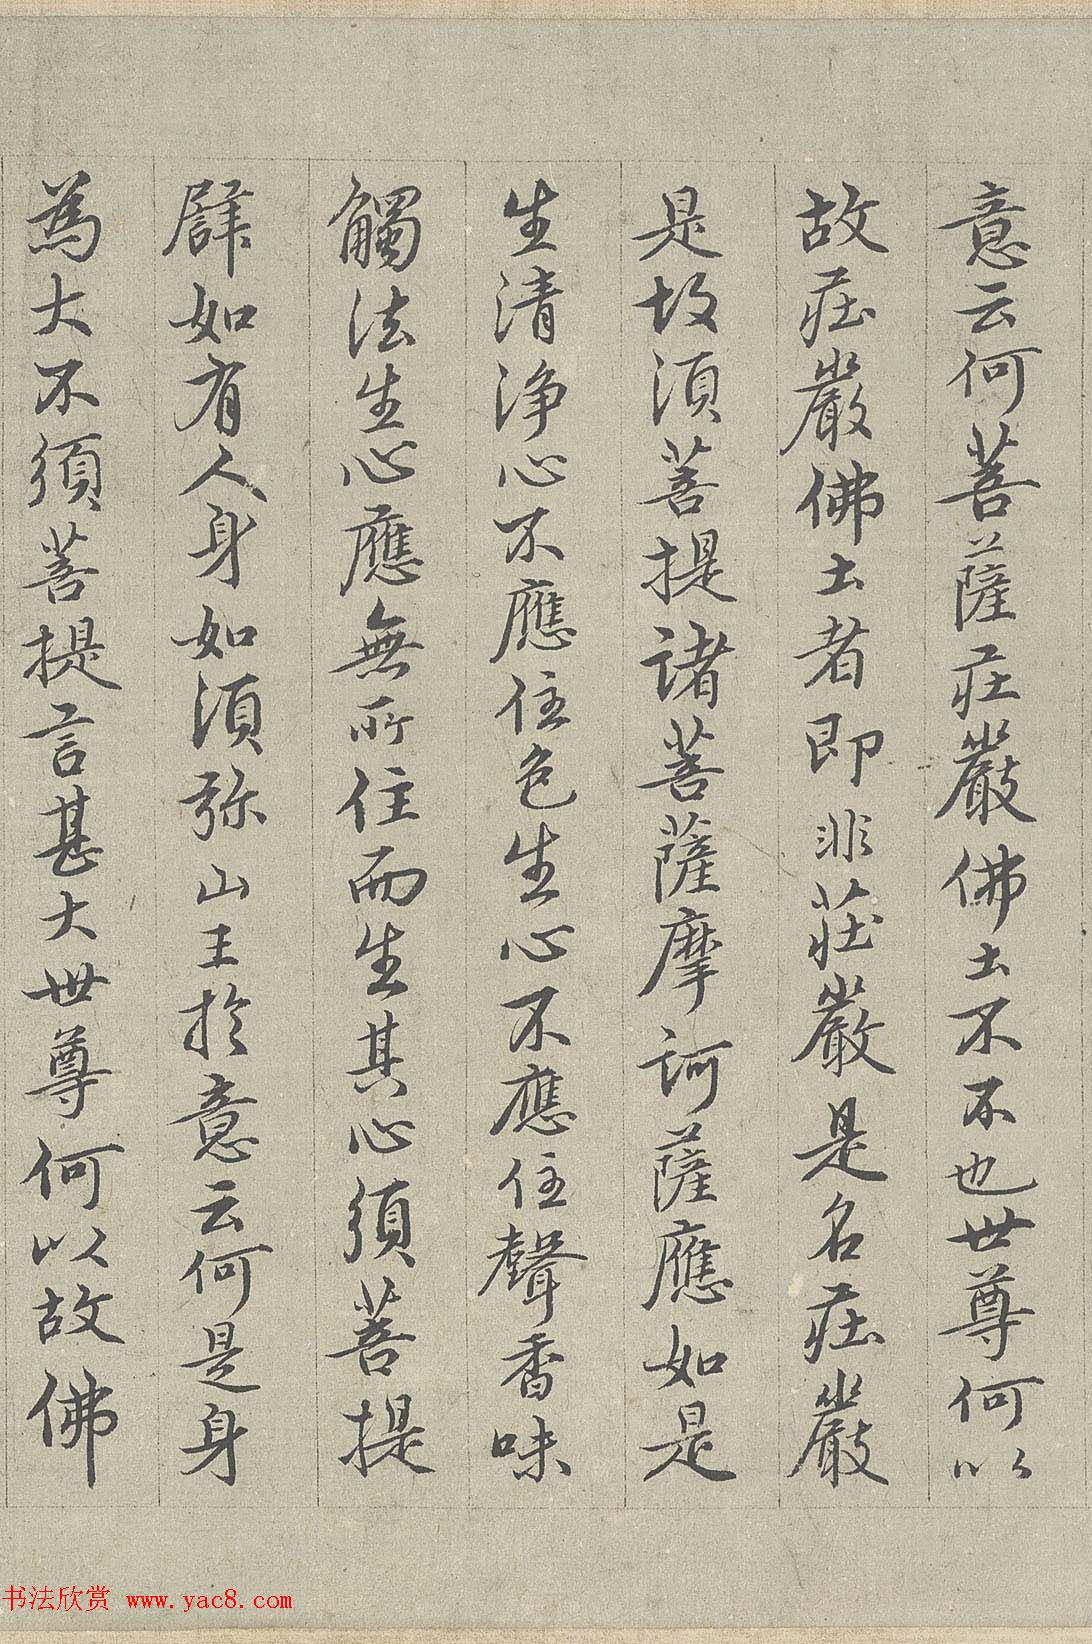 意云何菩薩莊嚴佛土不不也世尊何以
故莊嚴佛土者即非莊嚴是名莊嚴
是故須菩提諸菩薩摩訶薩應如是
生清淨心不應住色生心不應住聲香味
觸法生心應無所住而生其心須菩提
辟如有人身如須弥山王於意云何是身
為大不須菩提言甚大世尊何以故佛
书法欣赏 www.yac8.com